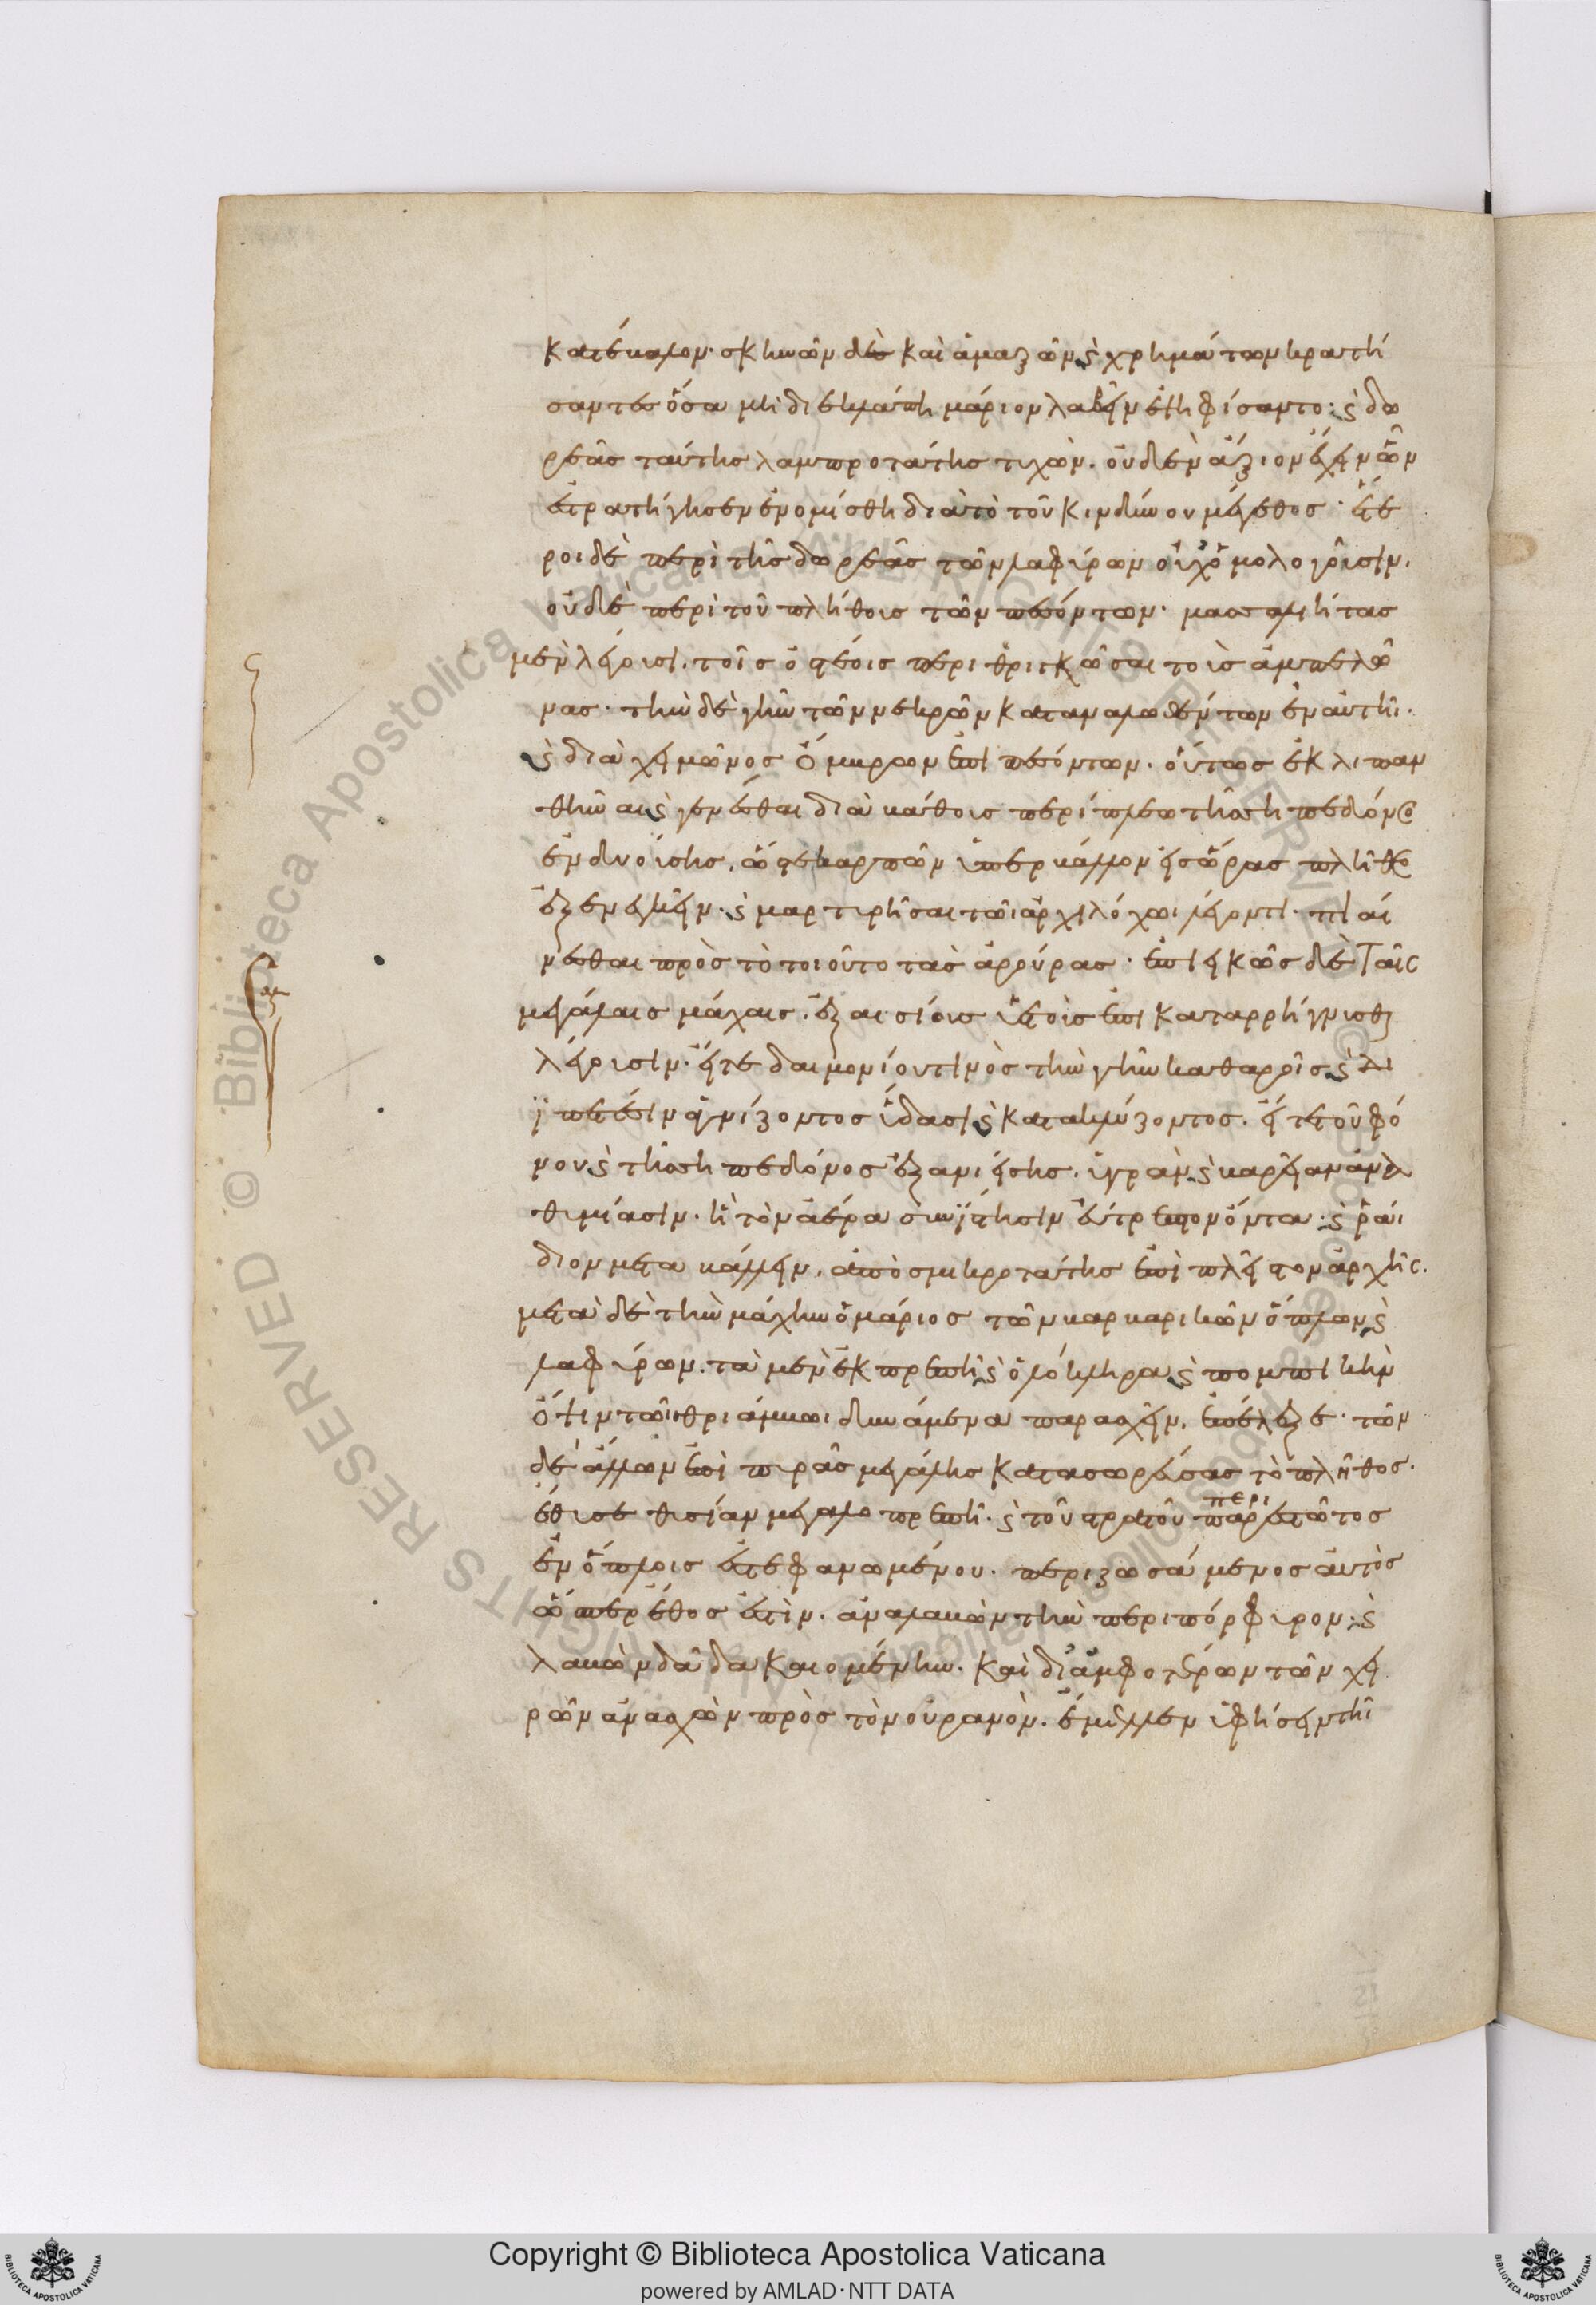 κατέβαλον· σκηνῶν δὲ καὶ ἁμαξῶν ϗ χρημάτων κρατή
σαντες ὅσα μὴ διεκλάπη μάριον λαβεῖν ἐψηφίσαντο· ϗ δω
ρεᾶς ταύτης λαμπροτάτης τυχὼν. οὐδὲν ἄξιον ἔχειν ὧν
ἐστρατήγησεν ἐνομίσθη διὰ τὸ τοῦ κινδύνου μέγεθος· ἕτε
ροι δὲ περὶ τῆς δωρεᾶς τῶν λαφύρων οὐχ ὁμολογοῦσιν,
οὐδὲ περὶ τοῦ πλήθους τῶν πεσόντων· μασσαλιήτας
μὲν λέγουσι. τοῖς ὀστέοις περιθριγκῶσαι τοὺς ἀμπελῶ
νας· τὴν δὲ γῆν τῶν νεκρῶν καταναλωθέντων ἐν αὐτῆι·
ϗ διὰ χειμῶνος ὄμβρων ἐπιπεσόντων. οὕτως ἐκλιπαν
θῆναι ϗ γενέσθαι διὰ βάθους περίπλεω τῆς σηπεδόνος
ἐνδυούσης. ὥστε καρπῶν ὑπερβάλλον εἰς ὥρας πλῆθος
ἐξενεγκεῖν· ϗ μαρτυρῆσαι τῶι ἀρχιλόχωι λέγοντι. πιαί
νεσθαι πρὸς τὸ τοιοῦτο τὰς ἀρούρας· ἐπιεικῶς δὲ ταῖς
μεγάλαις μάχαις. ἐξαισίους ὑετοὺς ἐπικαταρρήγνυσθαι
λέγουσιν· εἴτε δαιμονίου τινὸς τὴν γῆν καθαροῖς ϗ δι
ϊπετέσιν ἁγνίζοντος ὕδασι ϗ κατακλύζοντος. εἴτε τοῦ φό
νου ϗ τῆς σηπεδόνος ἐξανιείσης. ὑγρὰν ϗ βαρεῖαν ἀνα
θυμίασιν. ἣ τὸν ἀέρα συνΐστησιν εὔτρεπτον ὄντα· ϗ ῥάι
διον μεταβάλλειν, ἀπὸ σμικροτάτης ἐπὶ πλεῖστον ἀρχῆς.
μετὰ δὲ τὴν μάχην ὁ μάριος τῶν βαρβαρικῶν ὅπλων ϗ
λαφύρων. τὰ μὲν ἐκπρεπῆ ϗ ὁλόκληρα ϗ πομπικὴν
ὄψιν τῶι θριάμβωι δυνάμενα παρασχεῖν, ἐπέλεξε· τῶν
δὲ ἄλλων ἐπὶ πυρᾶς μεγάλης κατασωρεύσας τὸ πλῆθος.
ἔθυσε θυσίαν μεγαλοπρεπῆ· ϗ τοῦ στρατοῦ περι παρεστῶτος
ἐν ὅπλοις ἐστεφανωμένου. περιζωσάμενος αὐτὸς
ὥσπερ ἔθος ἐστὶν. ἀναλαβὼν τὴν περιπόρφυρον· ϗ
λαβὼν δᾶδα καιομένην. καὶ δι᾽ ἀμφοτέρων τῶν χει
ρῶν ἀνασχὼν πρὸς τὸν οὐρανὸν. ἔμελλεν ὑφήσειν τῆι
Copyright © Biblioteca Apostolica Vaticana
powered by AMLAD·NTT DATA